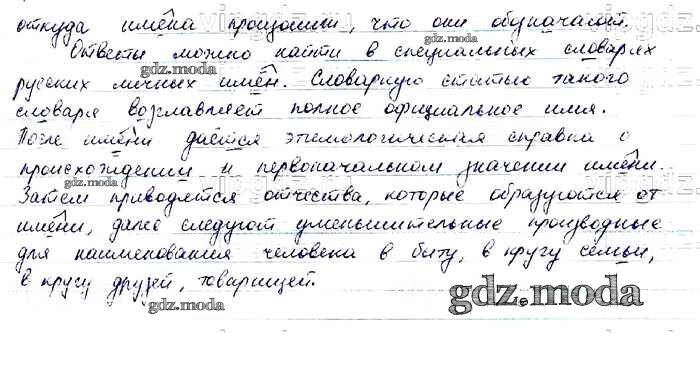 откуда имена произошли, что они обозначают.
Ответы можно найти в специальных словарях
gdz.moda
gdz.moda
русских личных имён. Словарную статью такого
словаря возглавляет полное официальное имя.
После имени даётся этимологическая справка о
происхождении и первоначальном значении имени.
gdz.moda
Затем приводятся отчества, которые образуются от
gdz.moda
имени, далее следуют уменьшительные производные
для наименования человека в быту, в кругу семьи,
в кругу друзей, товарищей.
gdz.moda